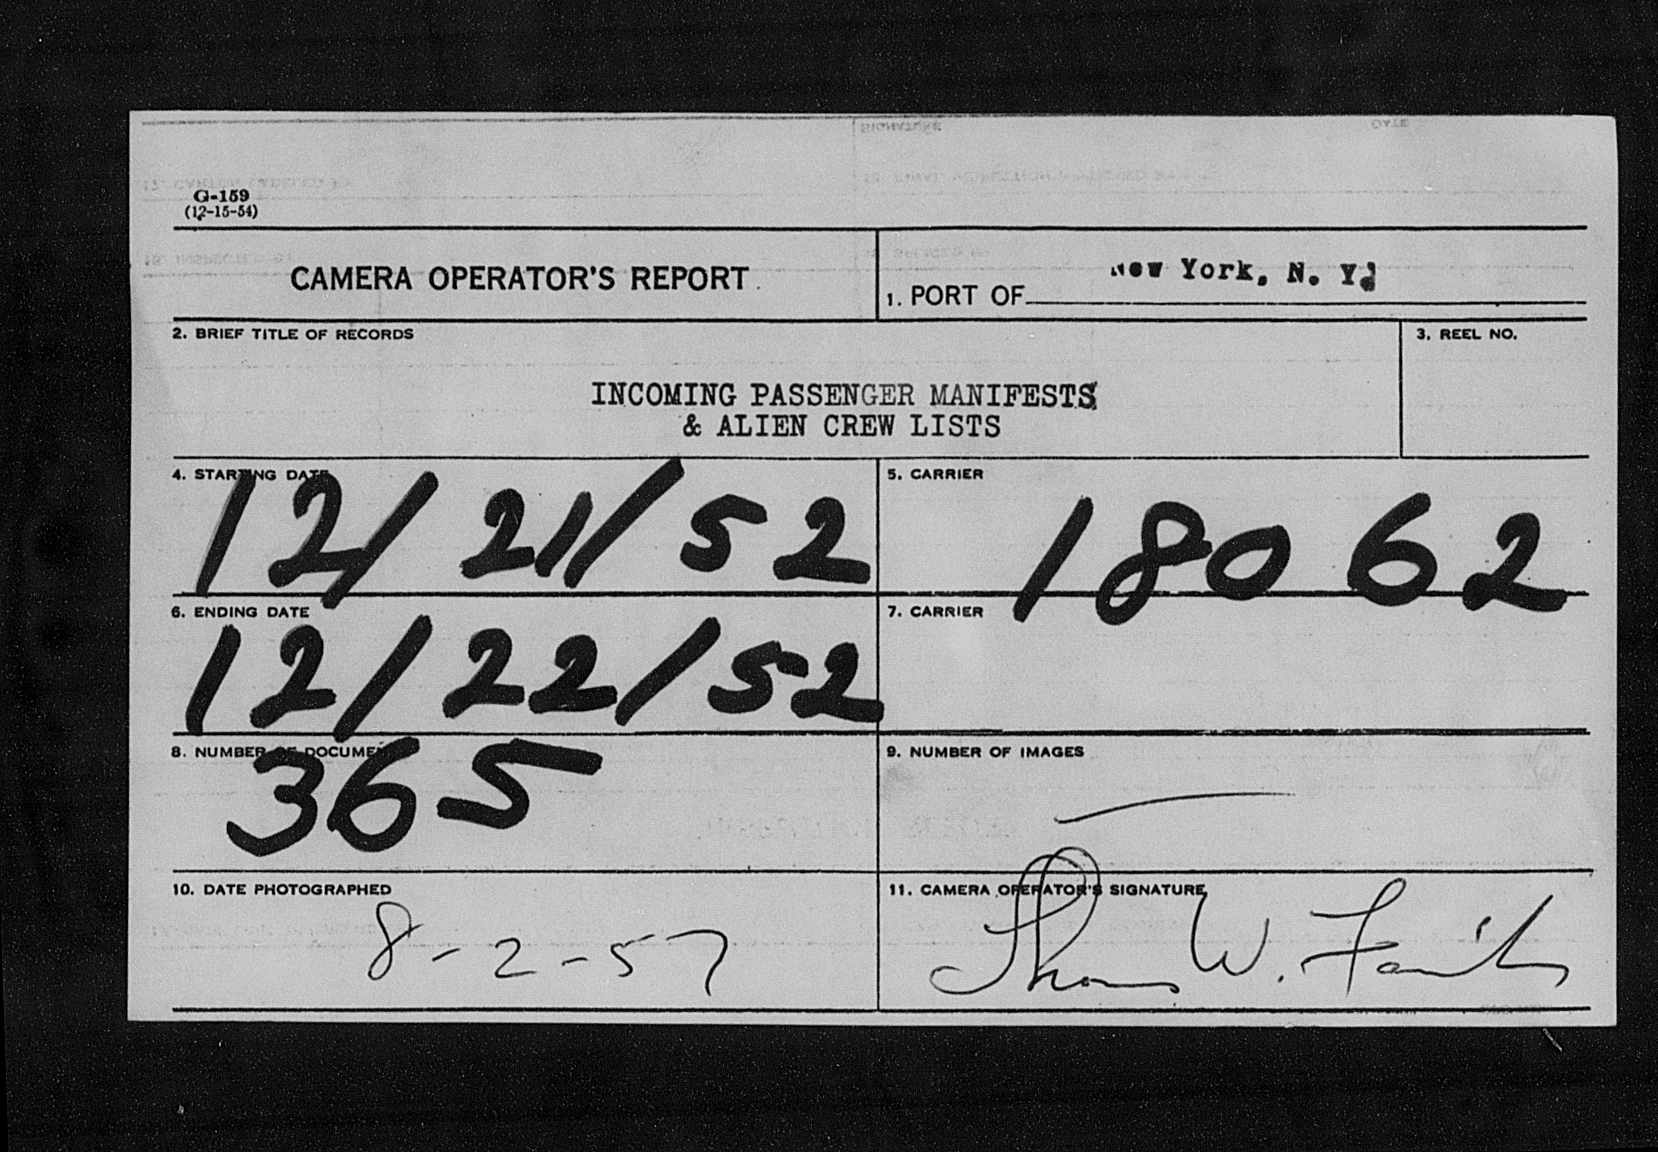 G-159
(12-15-54)
CAMERA OPERATOR'S REPORT
1. PORT OF New York, N. Y.
2. BRIEF TITLE OF RECORDS
3. REEL NO.
INCOMING PASSENGER MANIFESTS
& ALIEN CREW LISTS
4. STARTING DATE
12/21/52
5. CARRIER
18062
6. ENDING DATE
12/22/52
7. CARRIER
8. NUMBER OF DOCUMENTS
365
9. NUMBER OF IMAGES
10. DATE PHOTOGRAPHED
8-2-57
11. CAMERA OPERATOR'S SIGNATURE
Thomas W.